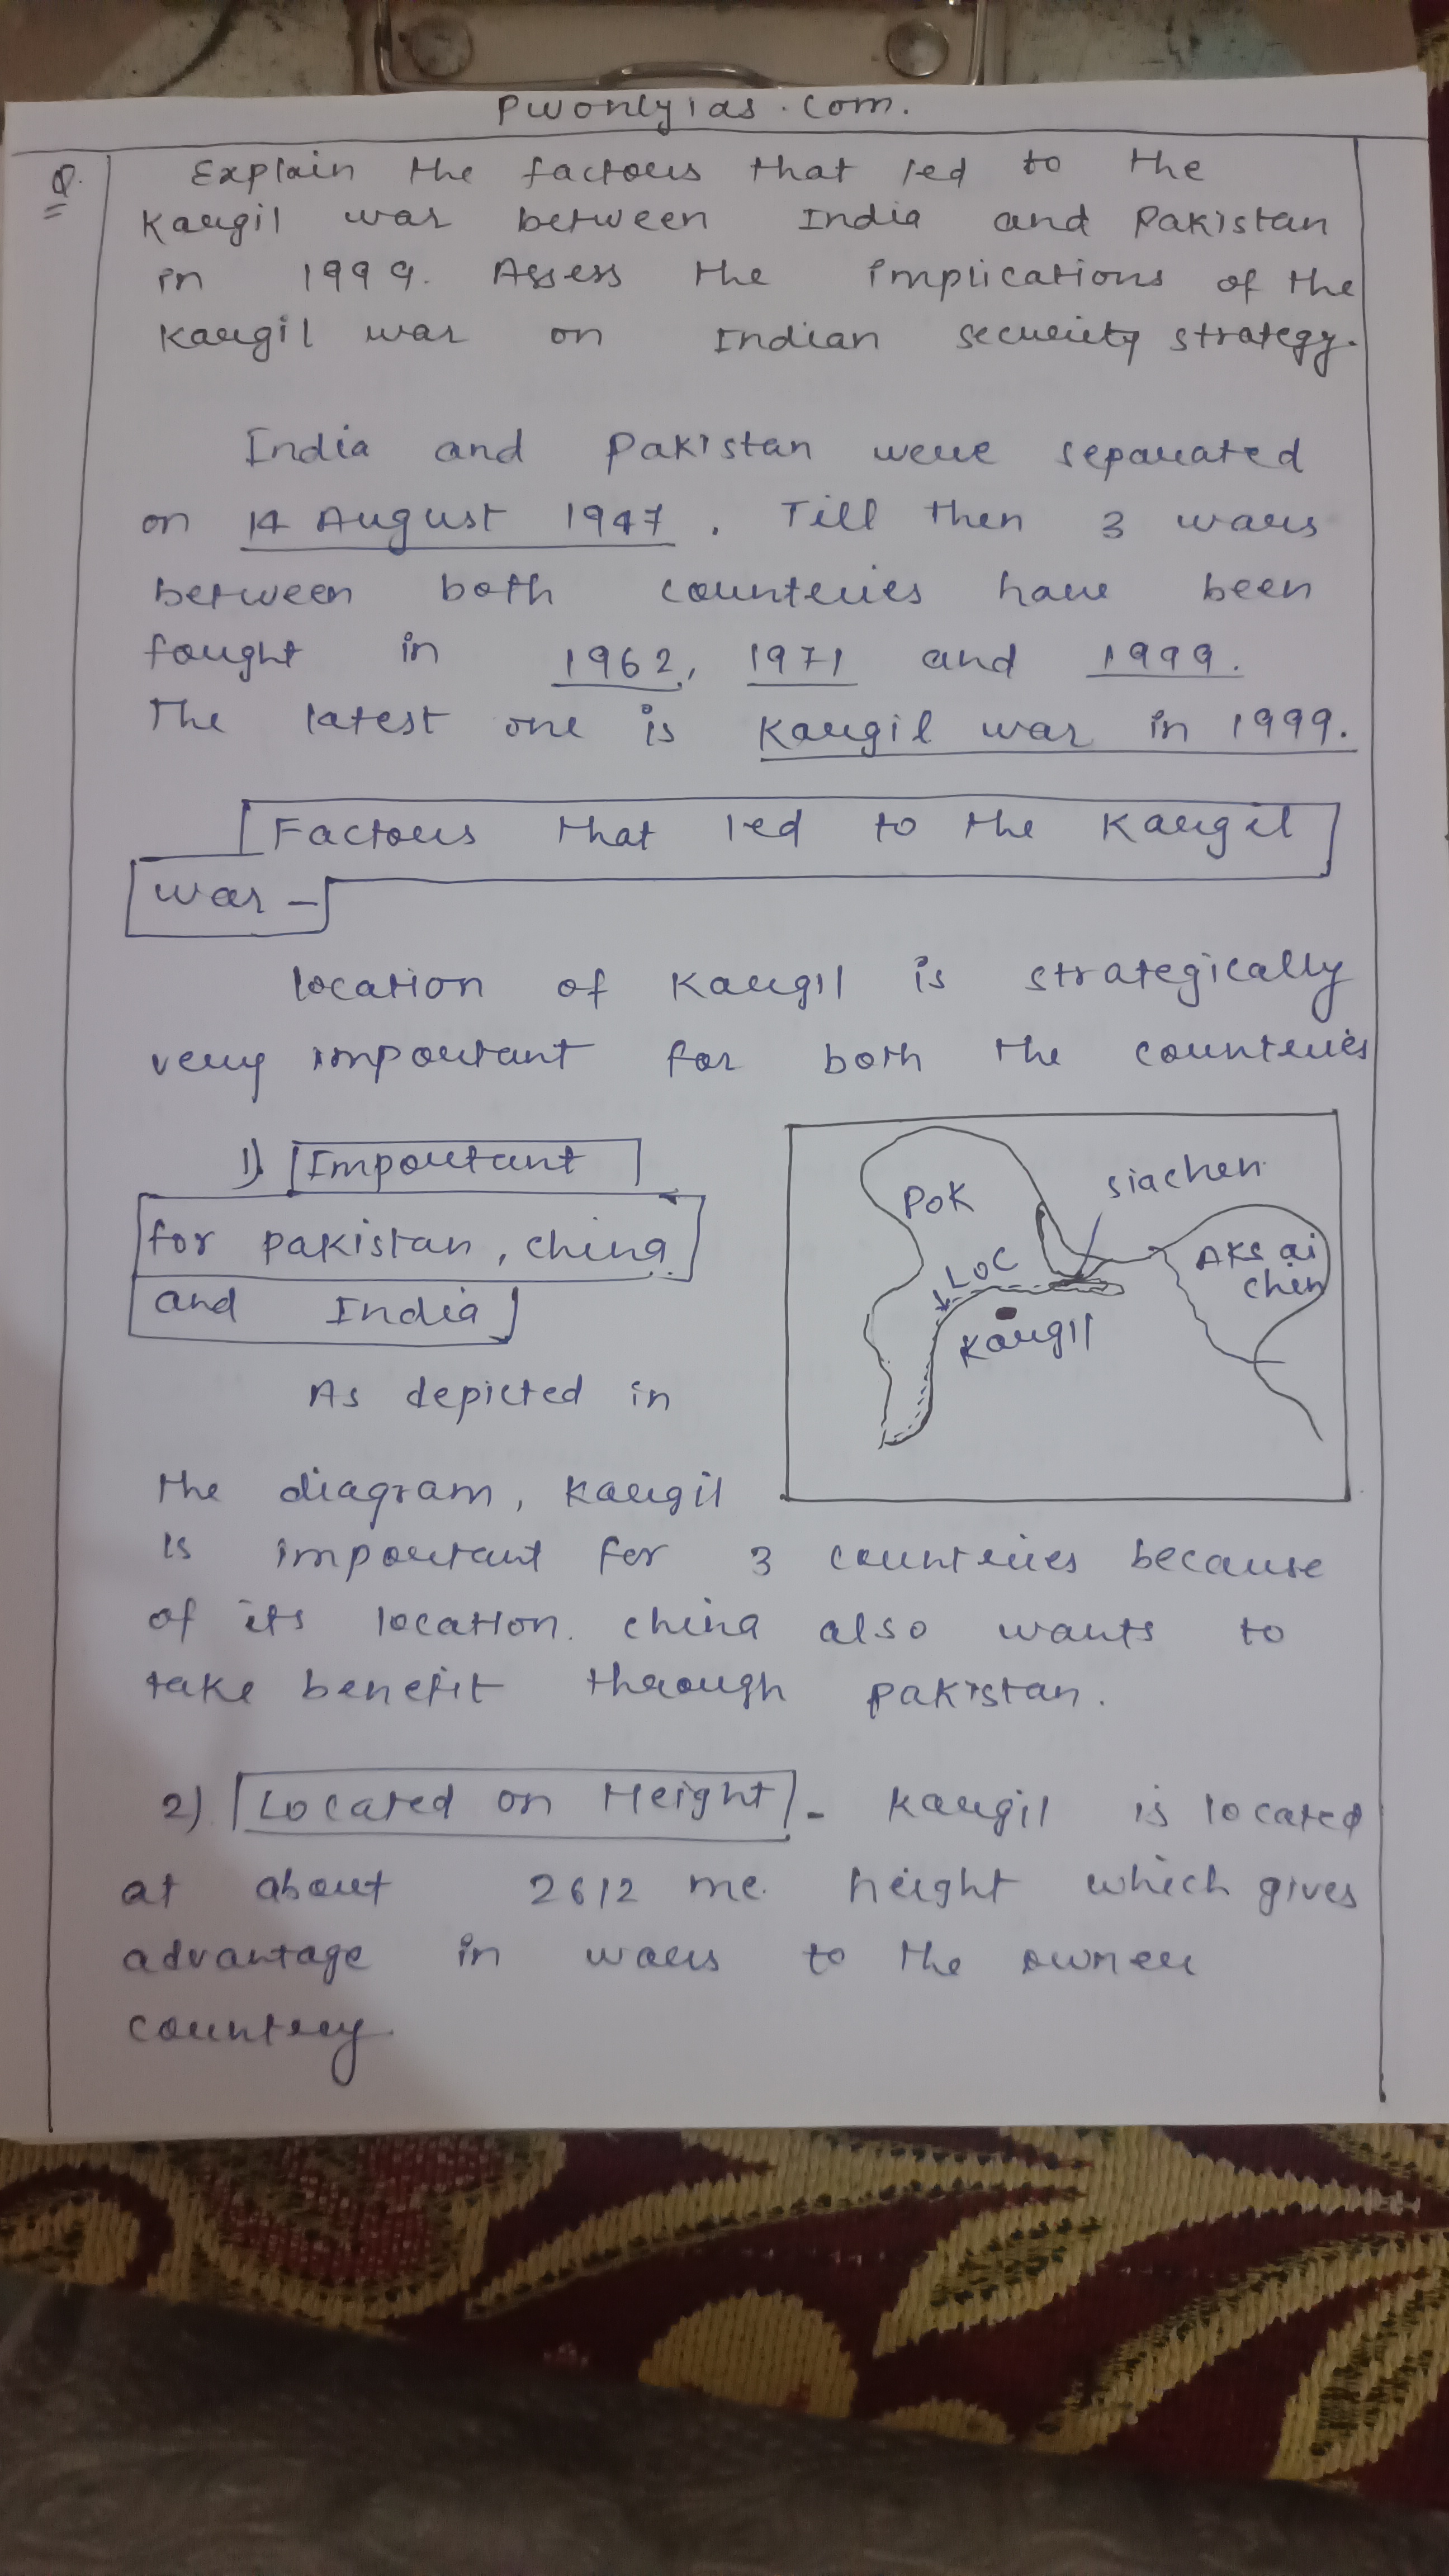 pwonlyias.com.
Q. Explain the factors that led to the
Kargil war between India and Pakistan
in 1999. Assess the implications of the
Kargil war on Indian security strategy.
India and Pakistan were separated
on 14 August 1947. Till then 3 wars
between both countries have been
fought in 1962, 1971 and 1999.
The latest one is Kargil war in 1999.
Factors that led to the Kargil
war -
location of Kargil is strategically
very important for both the countries
1) Important
for pakistan, china
and India
As depicted in
POK
siachen
LOC
AKsai
chin
Kargil
the diagram, Kargil
is important for 3 countries because
of its location. china also wants to
take benefit through pakistan.
2) Located on Height - Kargil is located
at about 2612 me. height which gives
advantage in wars to the owner
country.